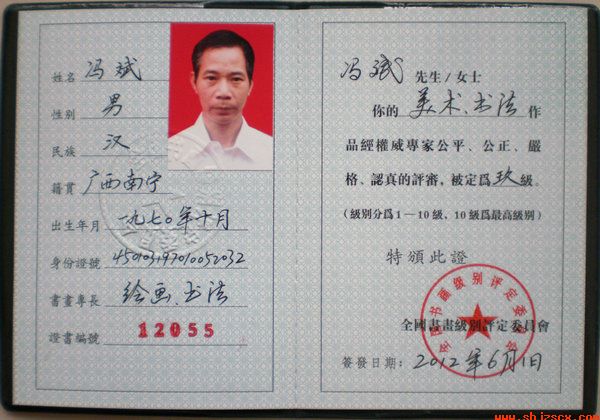 姓名 冯斌
性別 男
民族 汉
籍貫 广西南宁
出生年月 一九七〇年十月
身份證號 450103197010052032
書畫專長 绘画、书法
證書編號 12055
冯斌 先生/女士
你的 美术、书法 作
品經權威專家公平、公正、嚴
格、認真的評審，被定爲 玖 級。
(級別分爲1—10級，10級爲最高級別)
特頒此證
全國書畫級別評定委員會
簽發日期：2012年6月1日
全国书画级别评定委员会
www.shjzscx.com